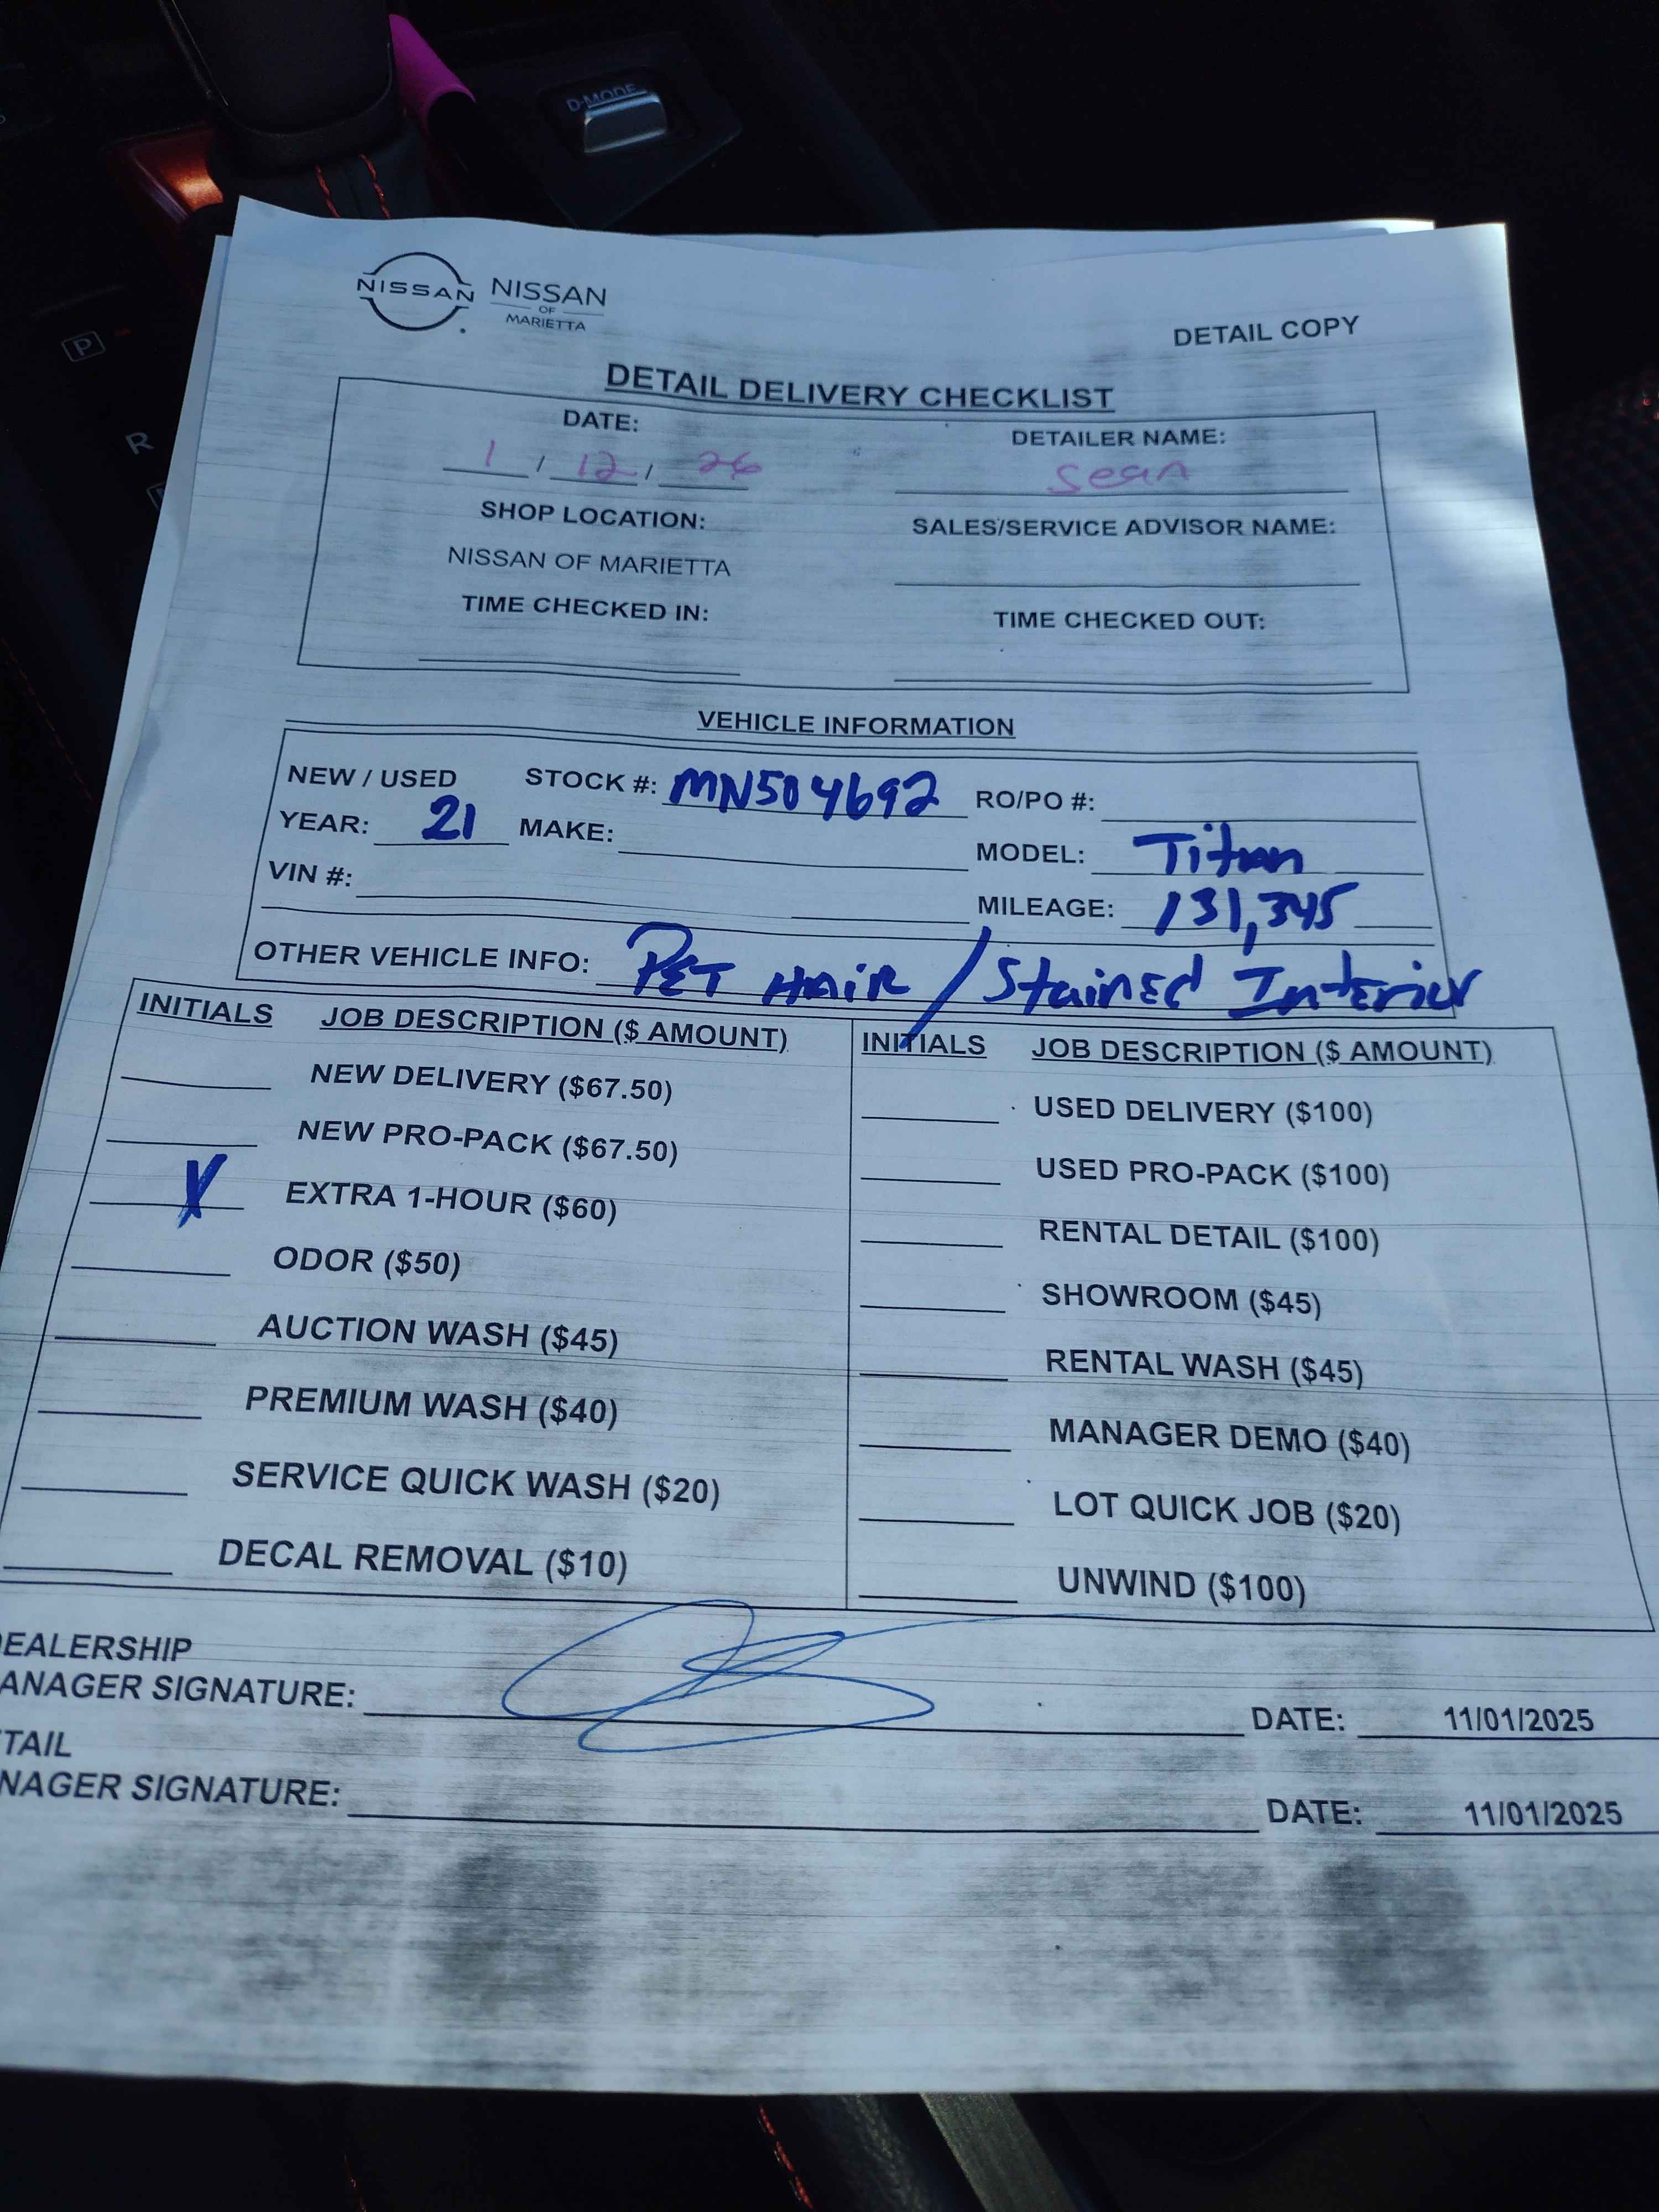 D-MODE
P
R
NISSAN
NISSAN
OF
MARIETTA
DETAIL COPY
DETAIL DELIVERY CHECKLIST
DATE:
1 / 12 / 26
DETAILER NAME:
Sean
SHOP LOCATION:
NISSAN OF MARIETTA
SALES/SERVICE ADVISOR NAME:
TIME CHECKED IN:
TIME CHECKED OUT:
VEHICLE INFORMATION
NEW / USED STOCK #: MN504692 RO/PO #:
YEAR: 21 MAKE: MODEL: Titan
VIN #: MILEAGE: 131,345
OTHER VEHICLE INFO: PET HAiR / StainEd IntErior
INITIALS JOB DESCRIPTION ($ AMOUNT)
NEW DELIVERY ($67.50)
NEW PRO-PACK ($67.50)
X EXTRA 1-HOUR ($60)
ODOR ($50)
AUCTION WASH ($45)
PREMIUM WASH ($40)
SERVICE QUICK WASH ($20)
DECAL REMOVAL ($10)
INITIALS JOB DESCRIPTION ($ AMOUNT)
USED DELIVERY ($100)
USED PRO-PACK ($100)
RENTAL DETAIL ($100)
SHOWROOM ($45)
RENTAL WASH ($45)
MANAGER DEMO ($40)
LOT QUICK JOB ($20)
UNWIND ($100)
EALERSHIP
ANAGER SIGNATURE: DATE: 11/01/2025
TAIL
NAGER SIGNATURE: DATE: 11/01/2025